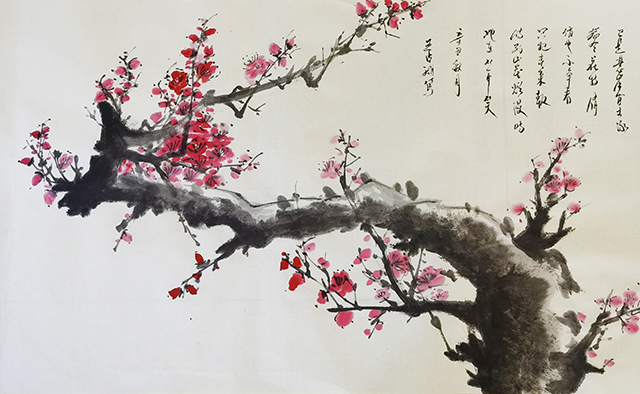 已是悬崖百丈冰
犹有花枝俏
俏也不争春
只把春来报
待到山花烂漫时
她在丛中笑